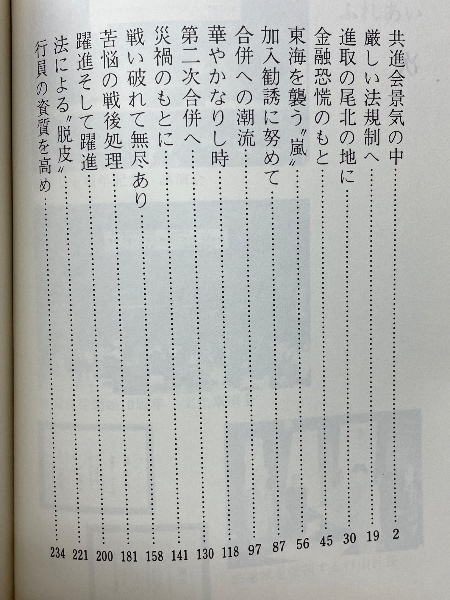 共進会景気の中……2
厳しい法規制へ……19
進取の尾北の地に……30
金融恐慌のもと……45
東海を襲う〝嵐〟……56
加入勧誘に努めて……87
合併への潮流……97
華やかなりし時……118
第二次合併へ……130
災禍のもとに……141
戦い破れて無尽あり……158
苦悩の戦後処理……181
躍進そして躍進……200
法による〝脱皮〟……221
行員の資質を高め……234